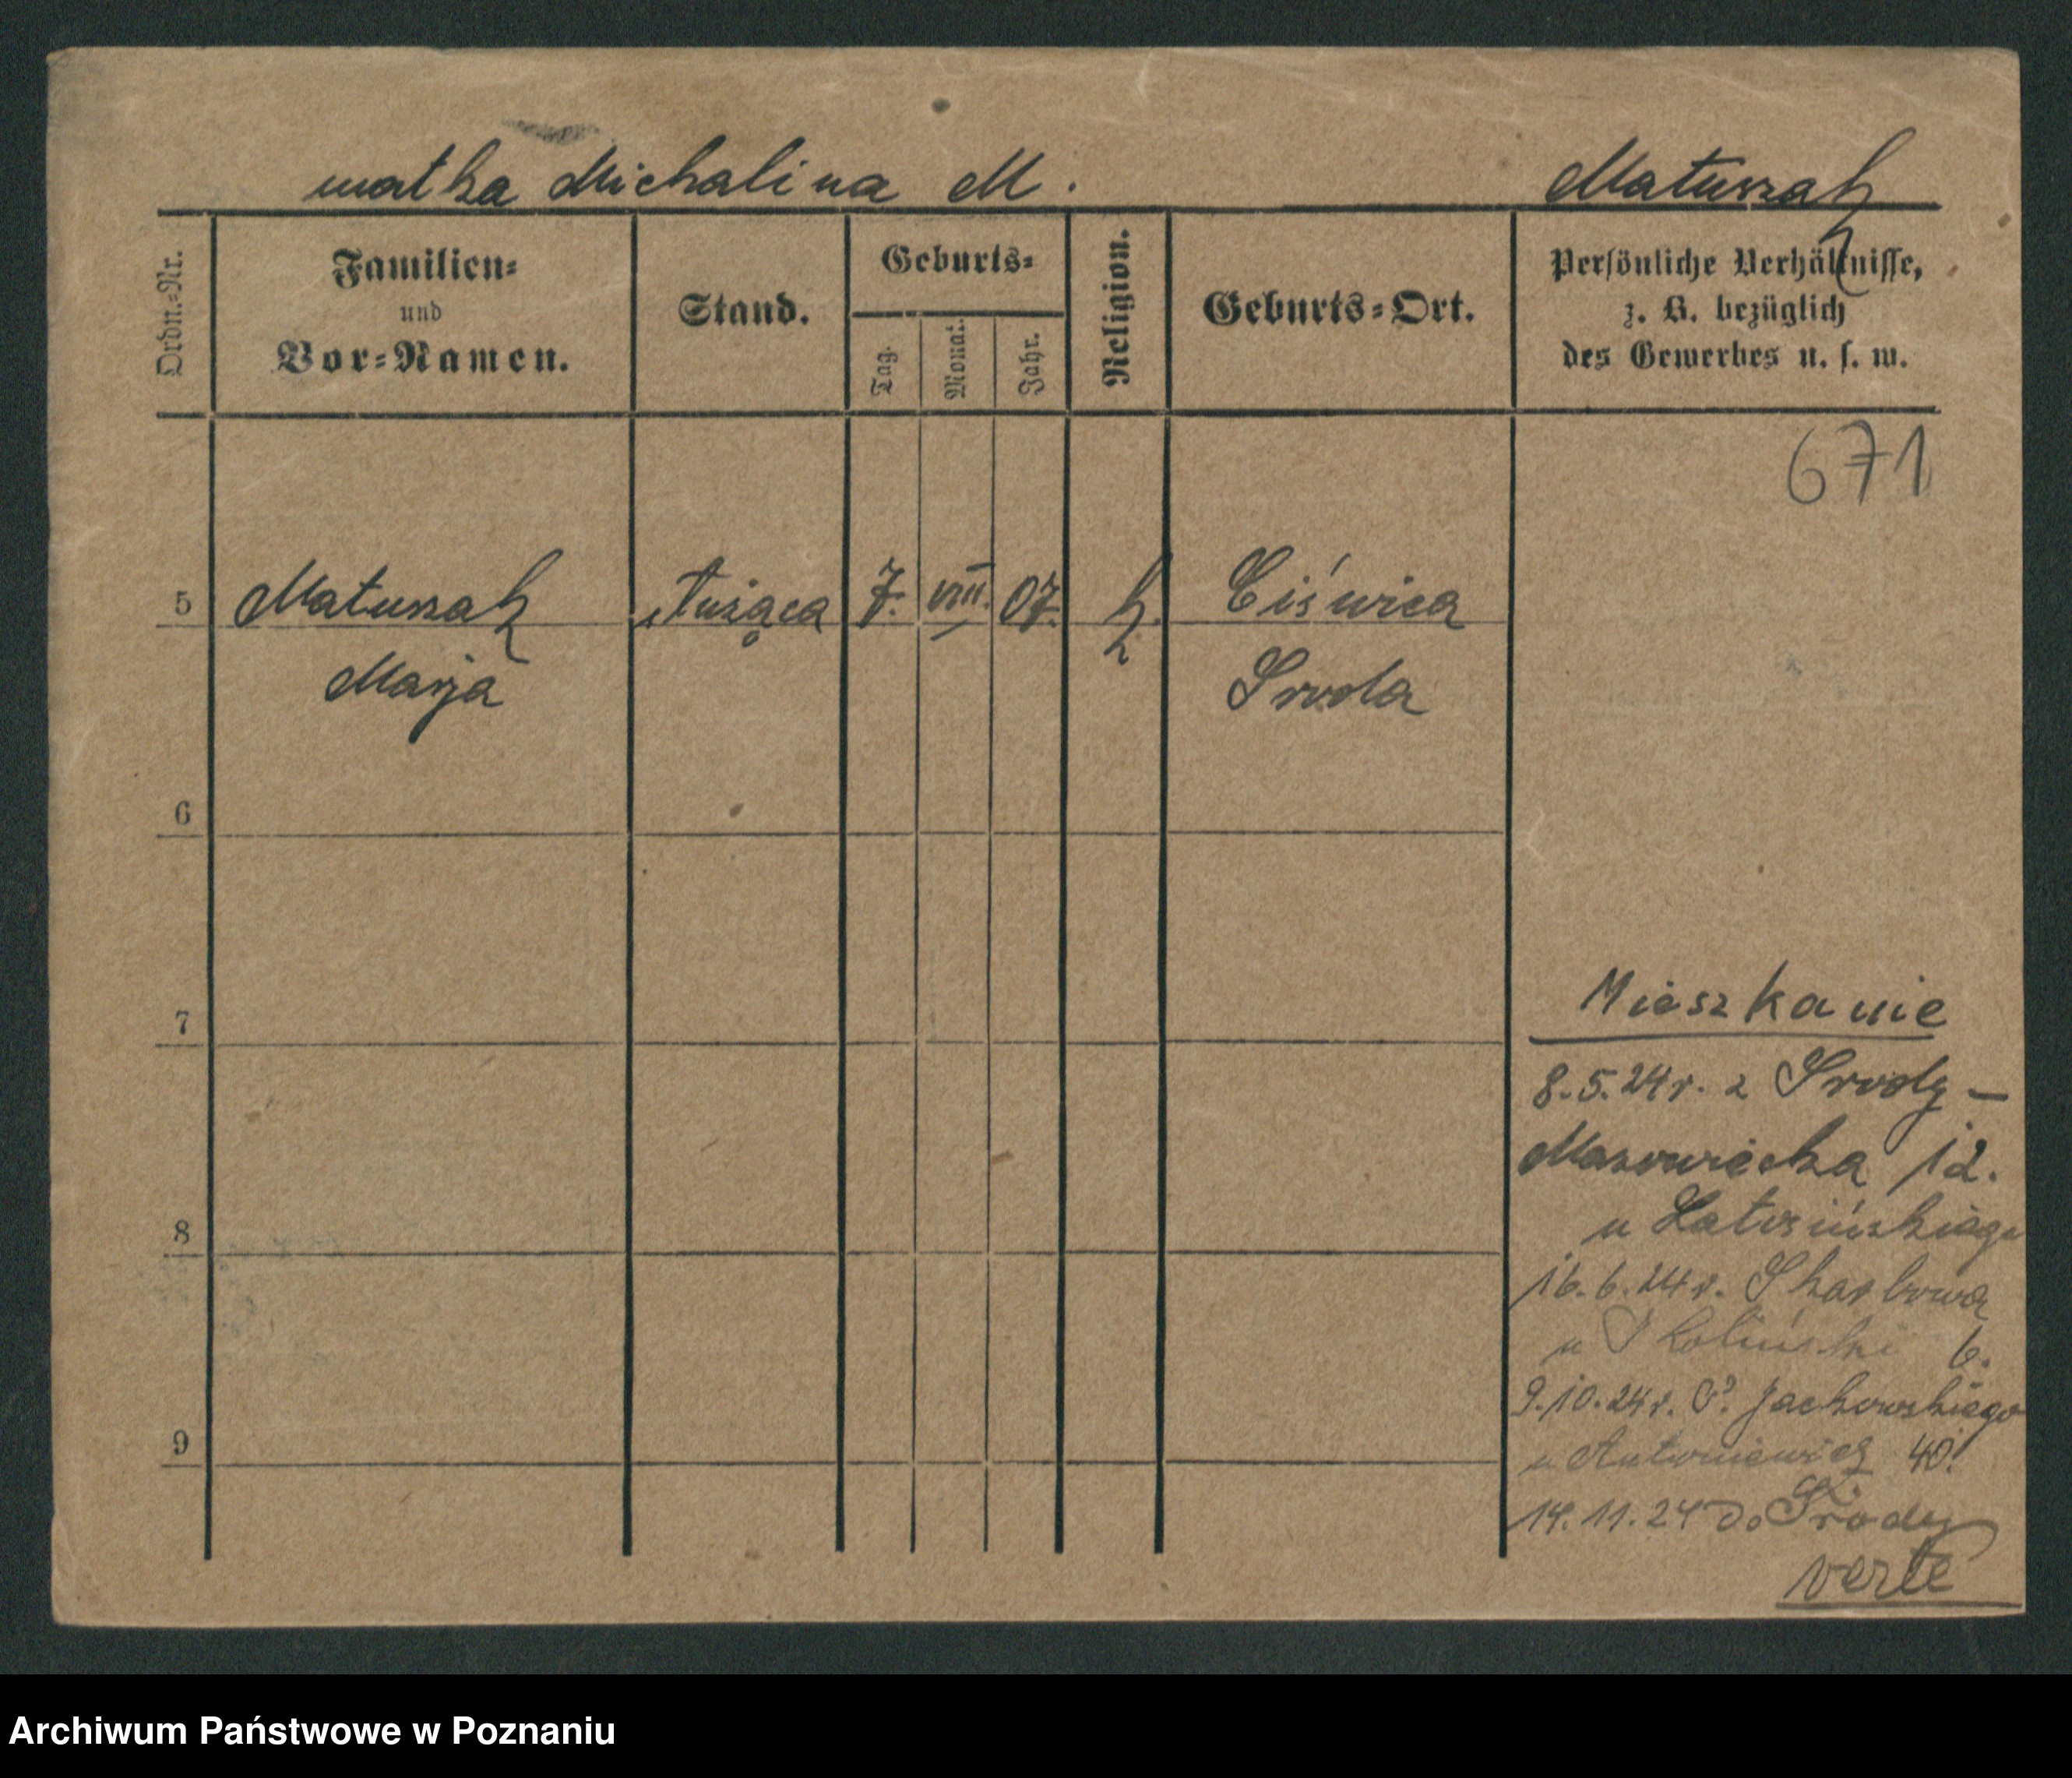 matka Michalina M.
Matuszak
Ordn.=Nr.
Familien=
und
Vor=Namen.
Stand.
Geburts=
Tag.
Monat.
Jahr.
Religion.
Geburts=Ort.
Persönliche Verhältnisse,
z. B. bezüglich
des Gewerbes u. s. w.
671
5 Matuszak służąca 7. VIII. 07. k. Ciświca
Marja Środa
6
7
8
9
Mieszkanie
8.5.24r. z Srody –
Mazowiecka 12.
u Latosińskiego
16.6.24r. Skarbowa
u 6.
9.10.24r. P. Jackowskiego
u Antoniewicz 40.
14.11.24 do Środy
verte
Archiwum Państwowe w Poznaniu